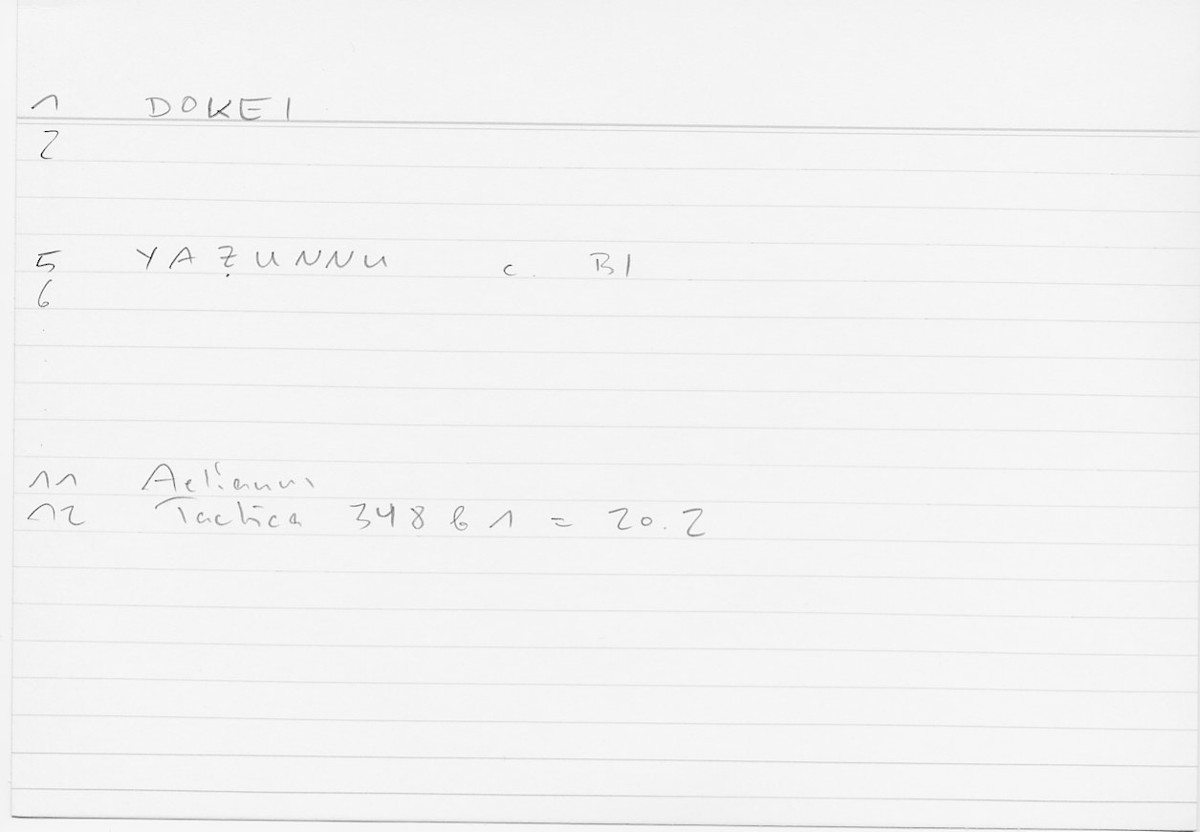 1 DOKEI
2
5 YAẒUNNU c. BI
6
11 Aelianus
12 Tactica 348 b 1 = 20.2